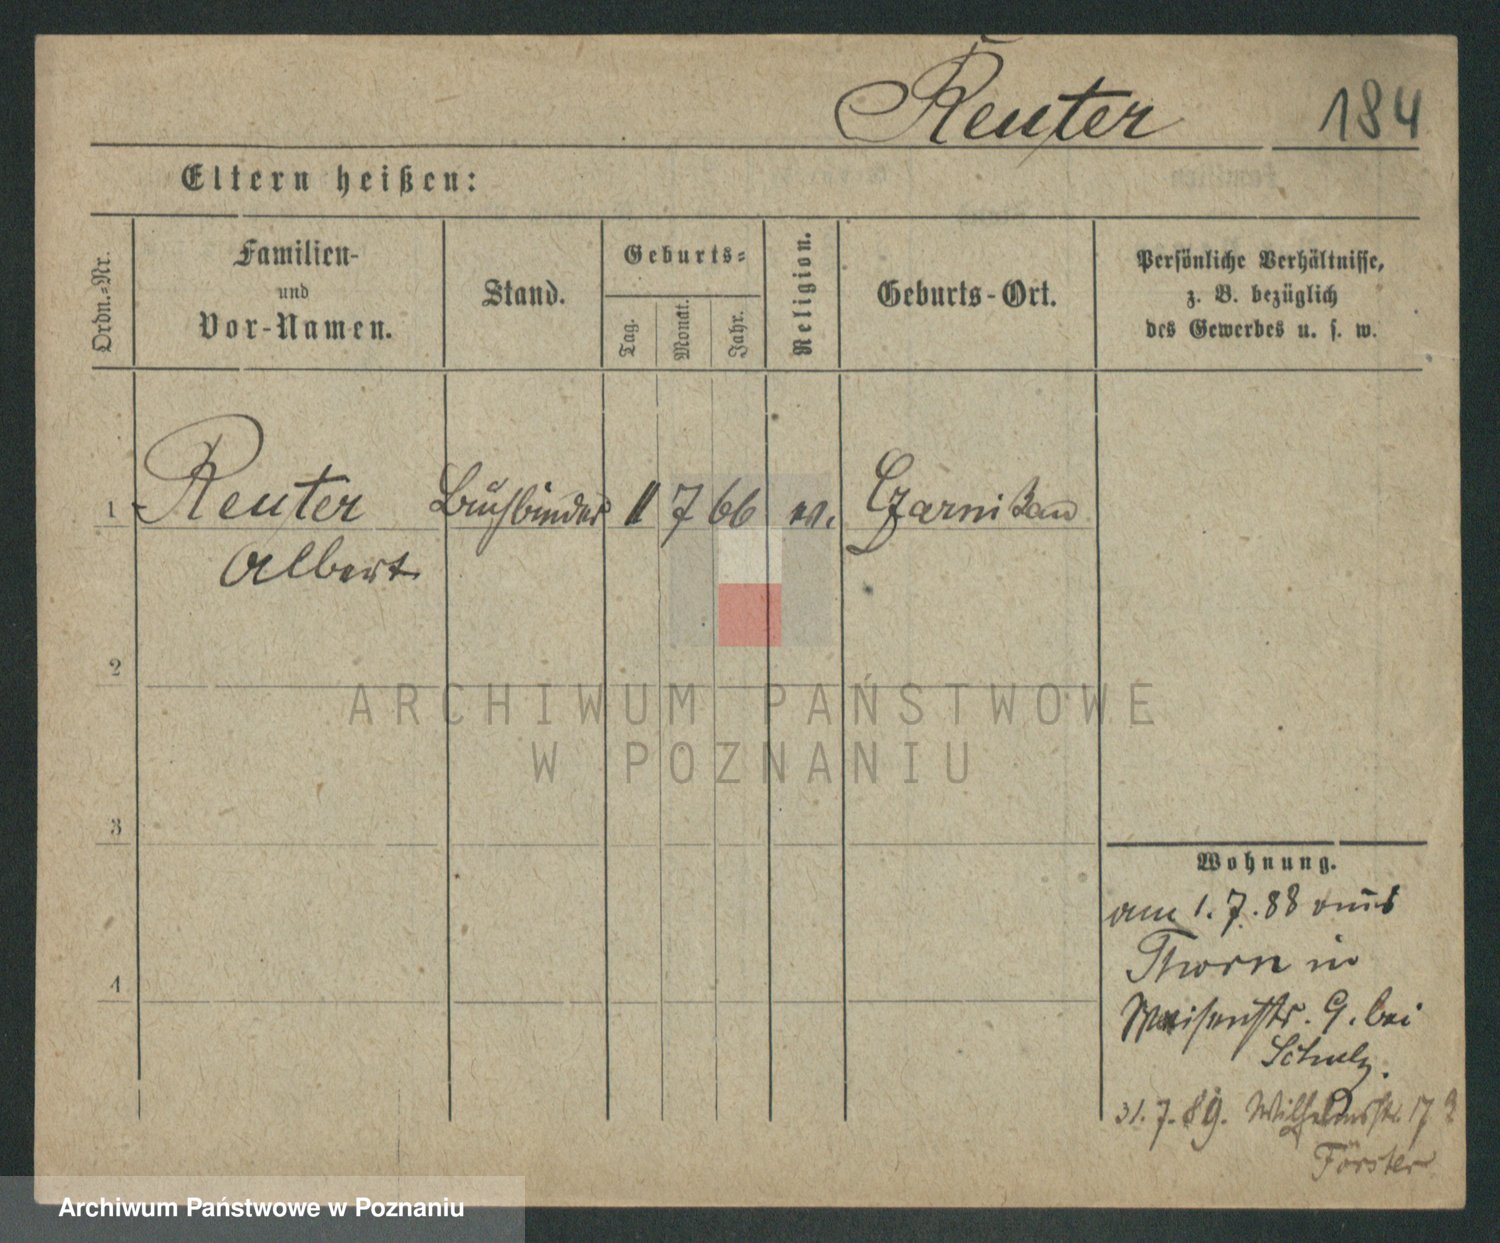 Reuter 184
Eltern heißen:
Ordn.-Nr.
Familien-
und
Vor-Namen.
Stand.
Geburts-
Tag.
Monat.
Jahr.
Religion.
Geburts-Ort.
Persönliche Verhältnisse,
z. B. bezüglich
des Gewerbes u. s. w.
1 Reuter Buchbinder 11 7 66 ev. Czarnikau
Albert
2
3
4
Wohnung.
am 1. 7. 88 aus
Thorn in
9. bei
Schulz.
31. 7. 89. Wilhelmstr. 17
Förster
ARCHIWUM PAŃSTWOWE
W POZNANIU
Archiwum Państwowe w Poznaniu